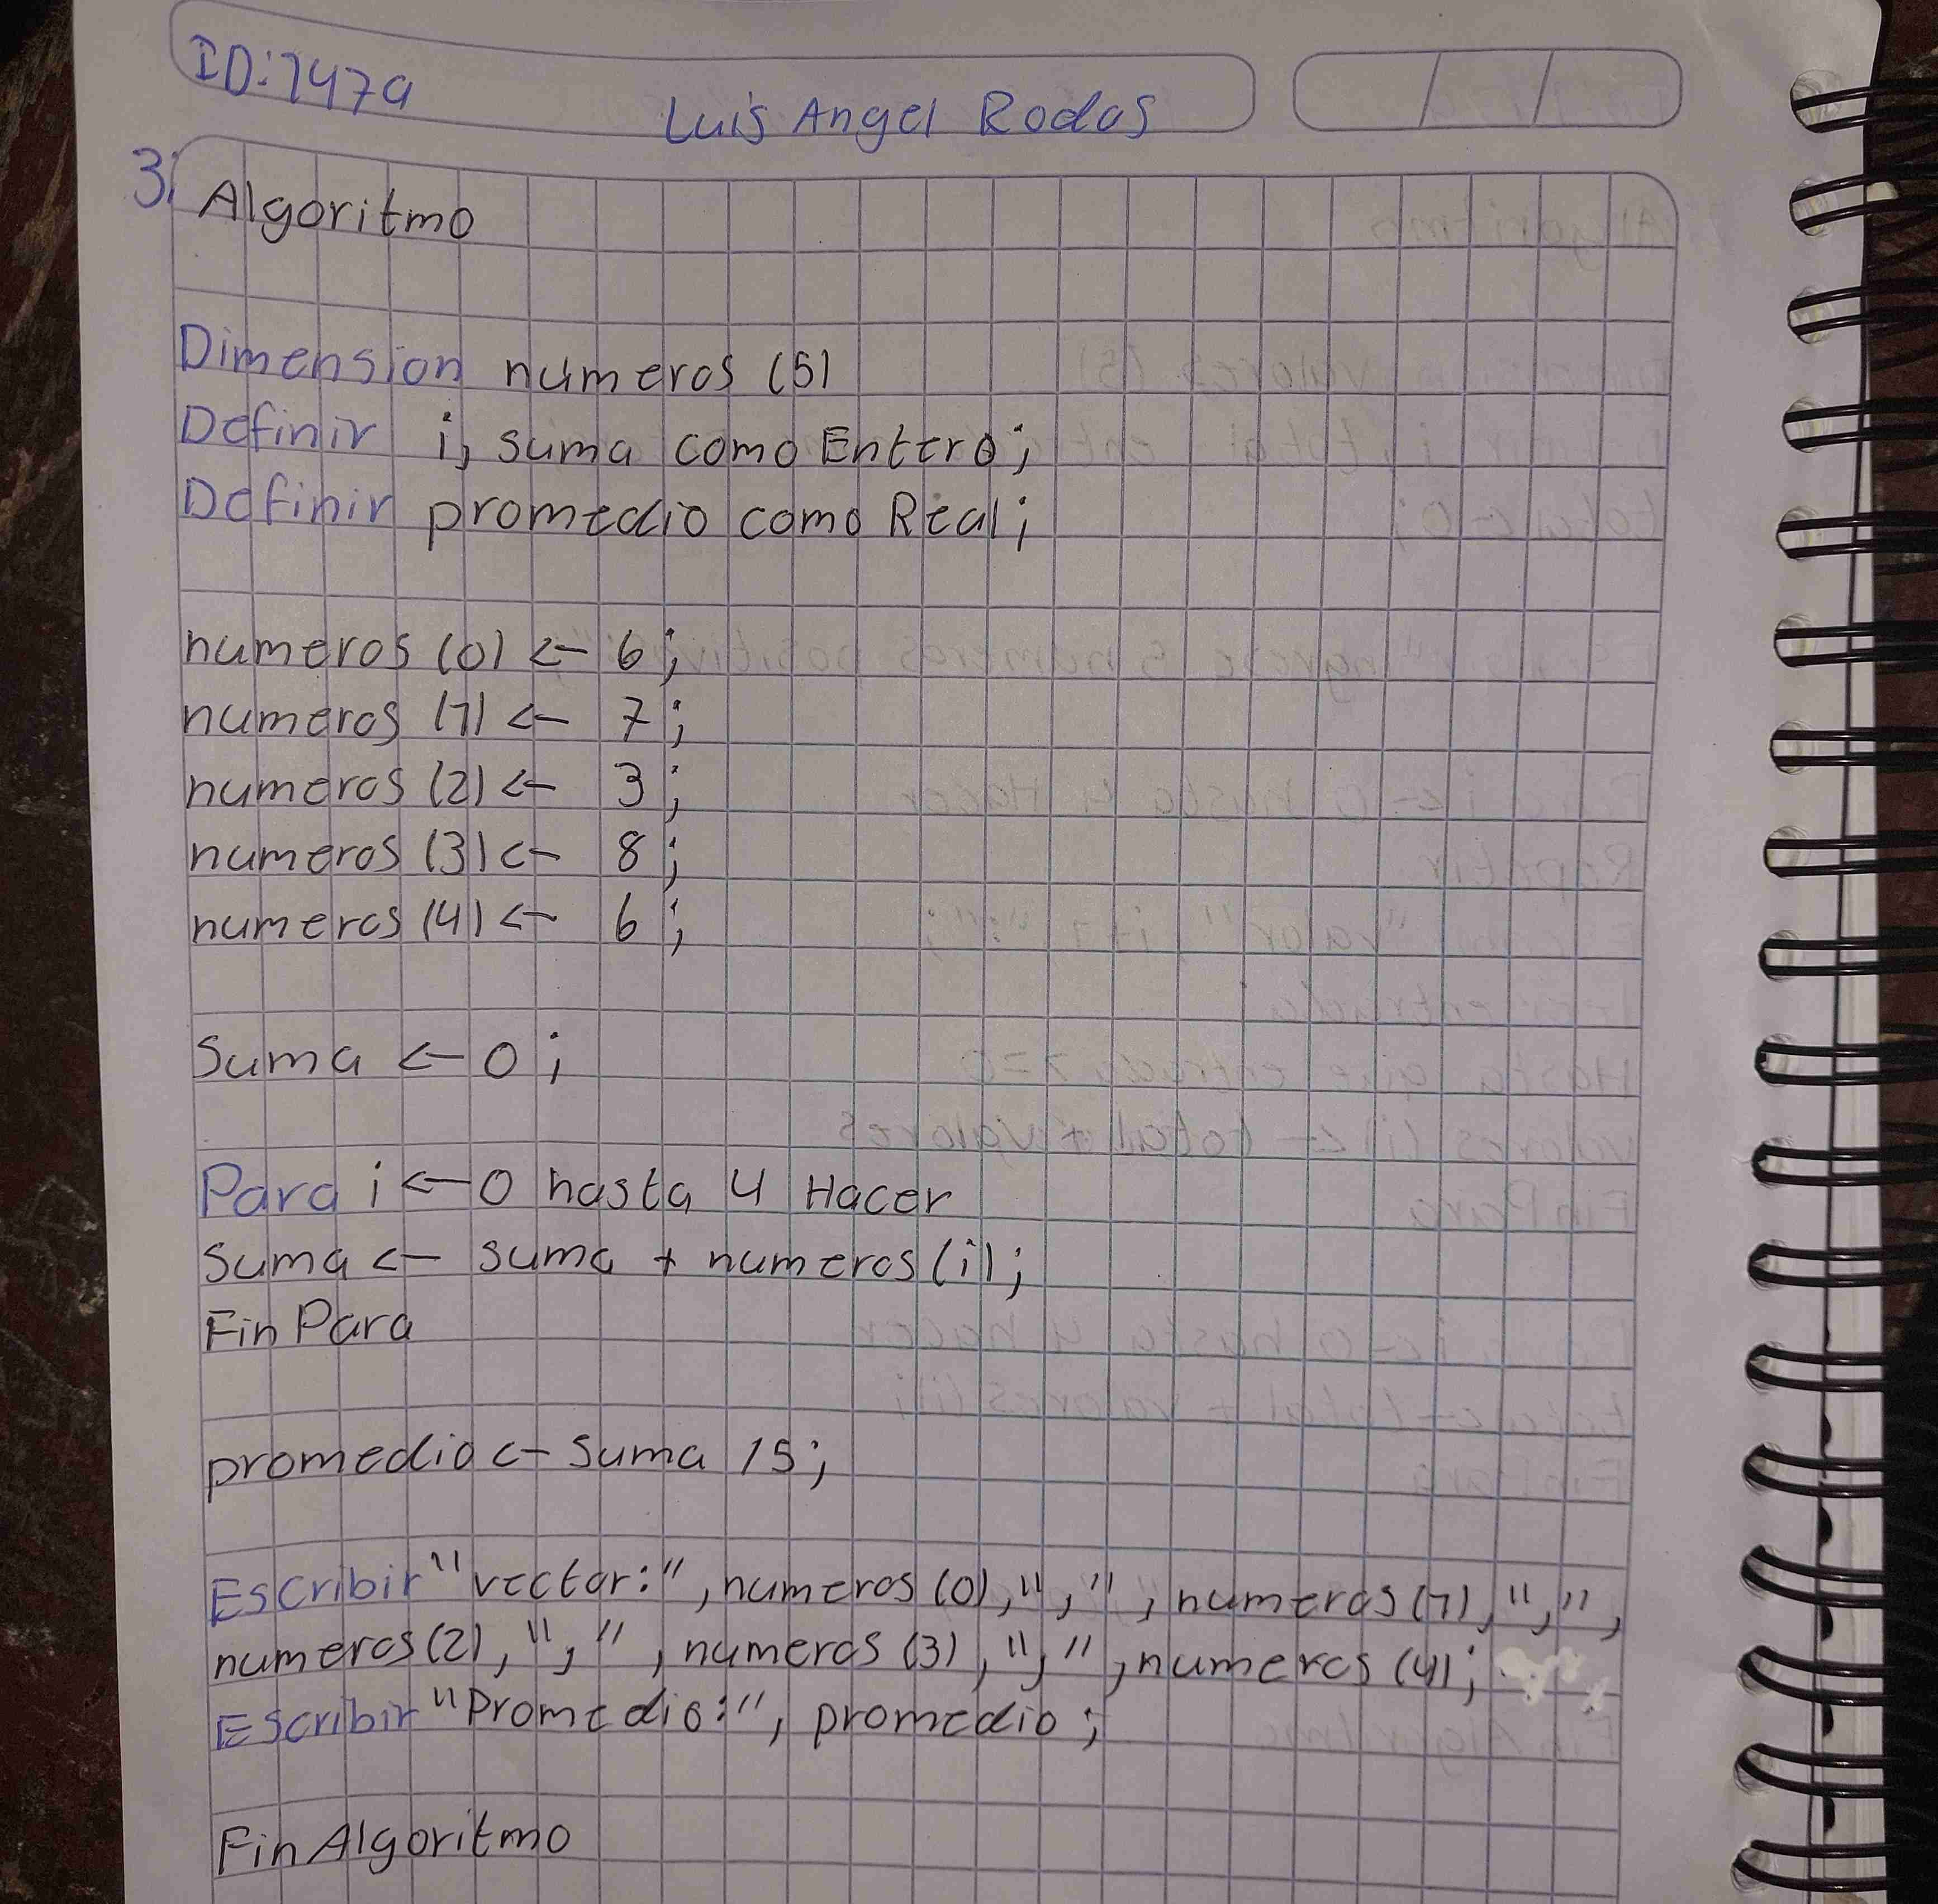 ID:1479
Luis Angel Rodas
3. Algoritmo
Dimension numeros (5)
Definir i, suma como Entero;
Definir promedio como Real;
numeros (0) <- 6;
numeros (1) <- 7;
numeros (2) <- 3;
numeros (3) <- 8;
numeros (4) <- 6;
Suma <- 0;
Para i <- 0 hasta 4 Hacer
Suma <- suma + numeros (i);
Fin Para
promedio <- Suma /5;
Escribir "vector:", numeros (0), ",", numeros (1), ",",
numeros (2), ",", numeros (3), ",", numeros (4);
Escribir "Promedio:", promedio;
Fin Algoritmo